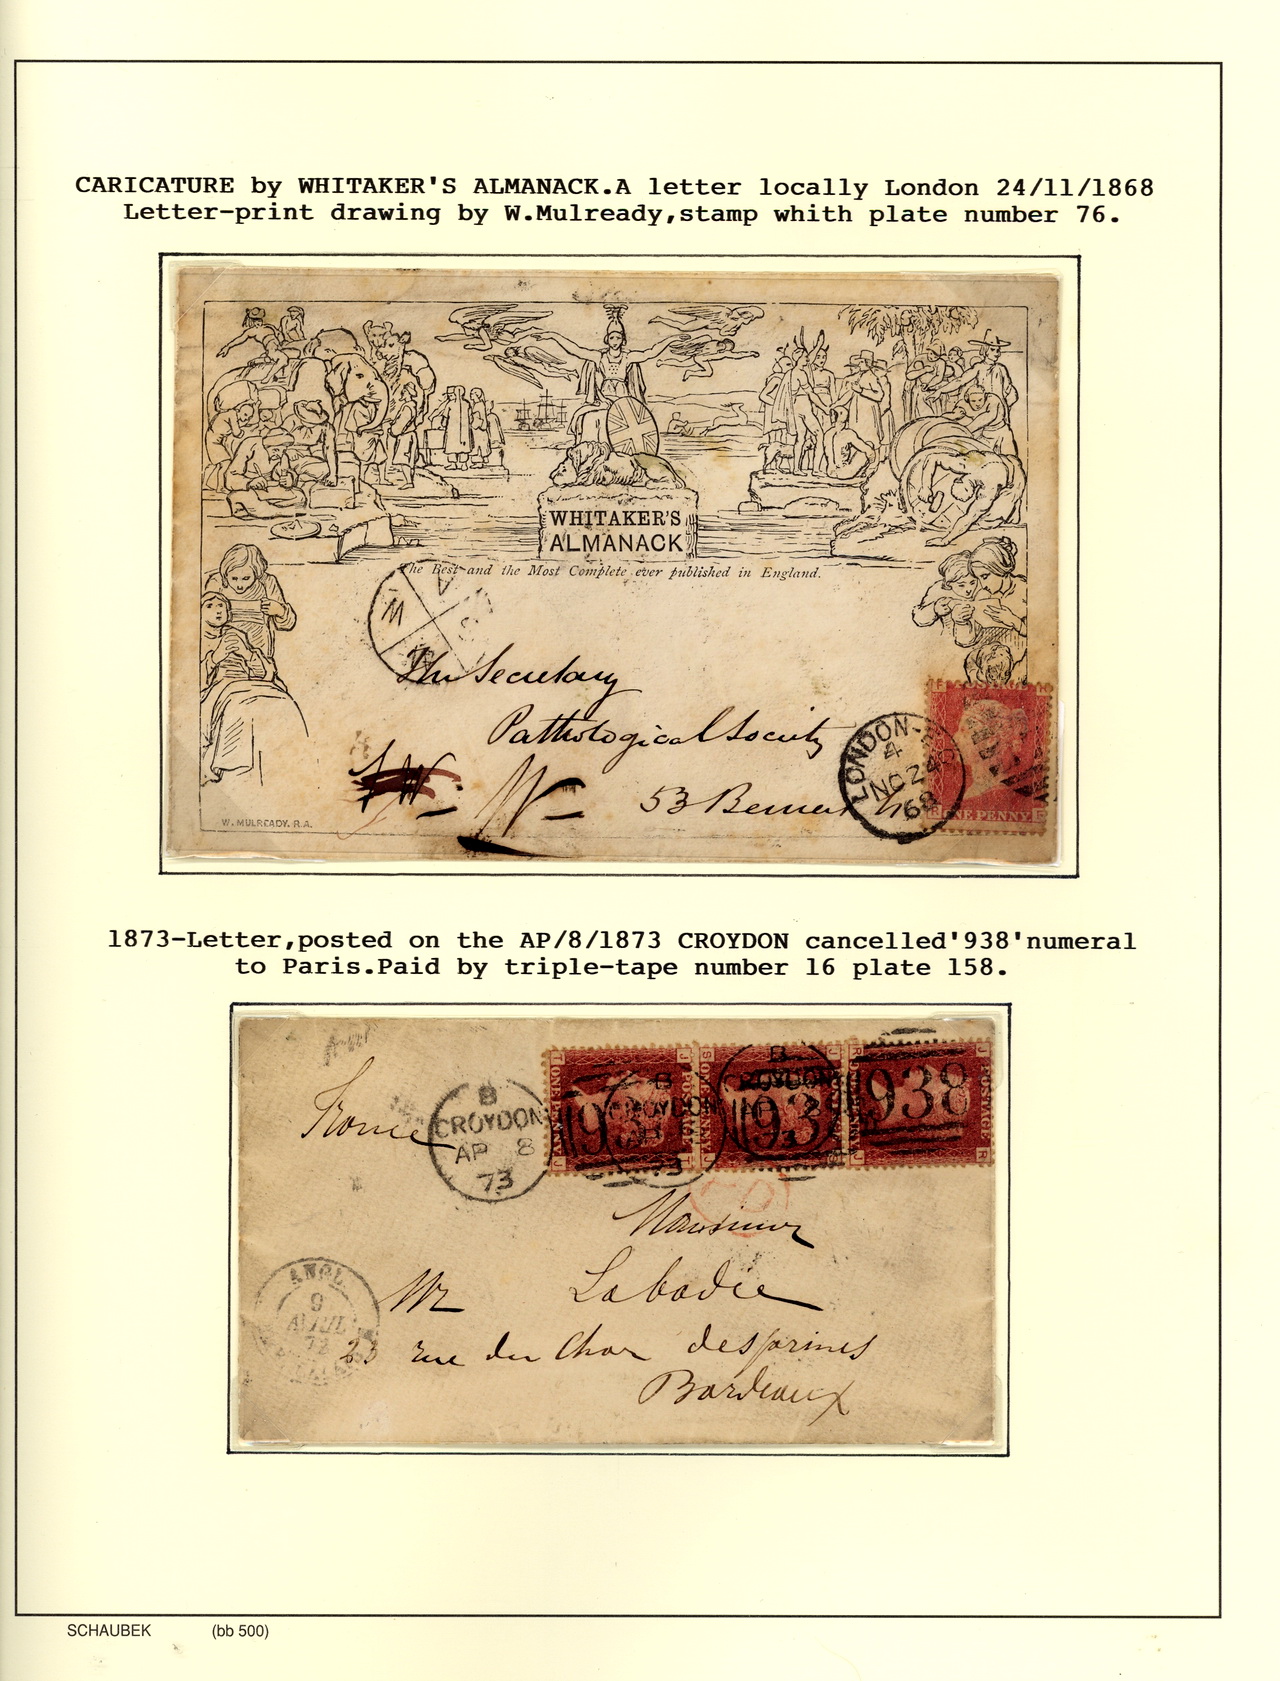 CARICATURE by WHITAKER'S ALMANACK.A letter locally London 24/11/1868
Letter-print drawing by W.Mulready,stamp whith plate number 76.
WHITAKER'S
ALMANACK
The Best and the Most Complete ever published in England.
W
The Secretary
Pathological Society
W
53 Berners
LONDON
4
NO 24
68
F R
R F
ONE PENNY
W. MULREADY. R.A.
1873-Letter,posted on the AP/8/1873 CROYDON cancelled'938'numeral
to Paris.Paid by triple-tape number 16 plate 158.
France
B
CROYDON
AP 8
73
938
B
CROYDON
73
B
CROYDON
938
938
POSTAGE
PD
Monsieur
Mr Labadie
23 rue du Chai des farines
Bordeaux
ANGL.
9
AVRIL
73
SCHAUBEK (bb 500)